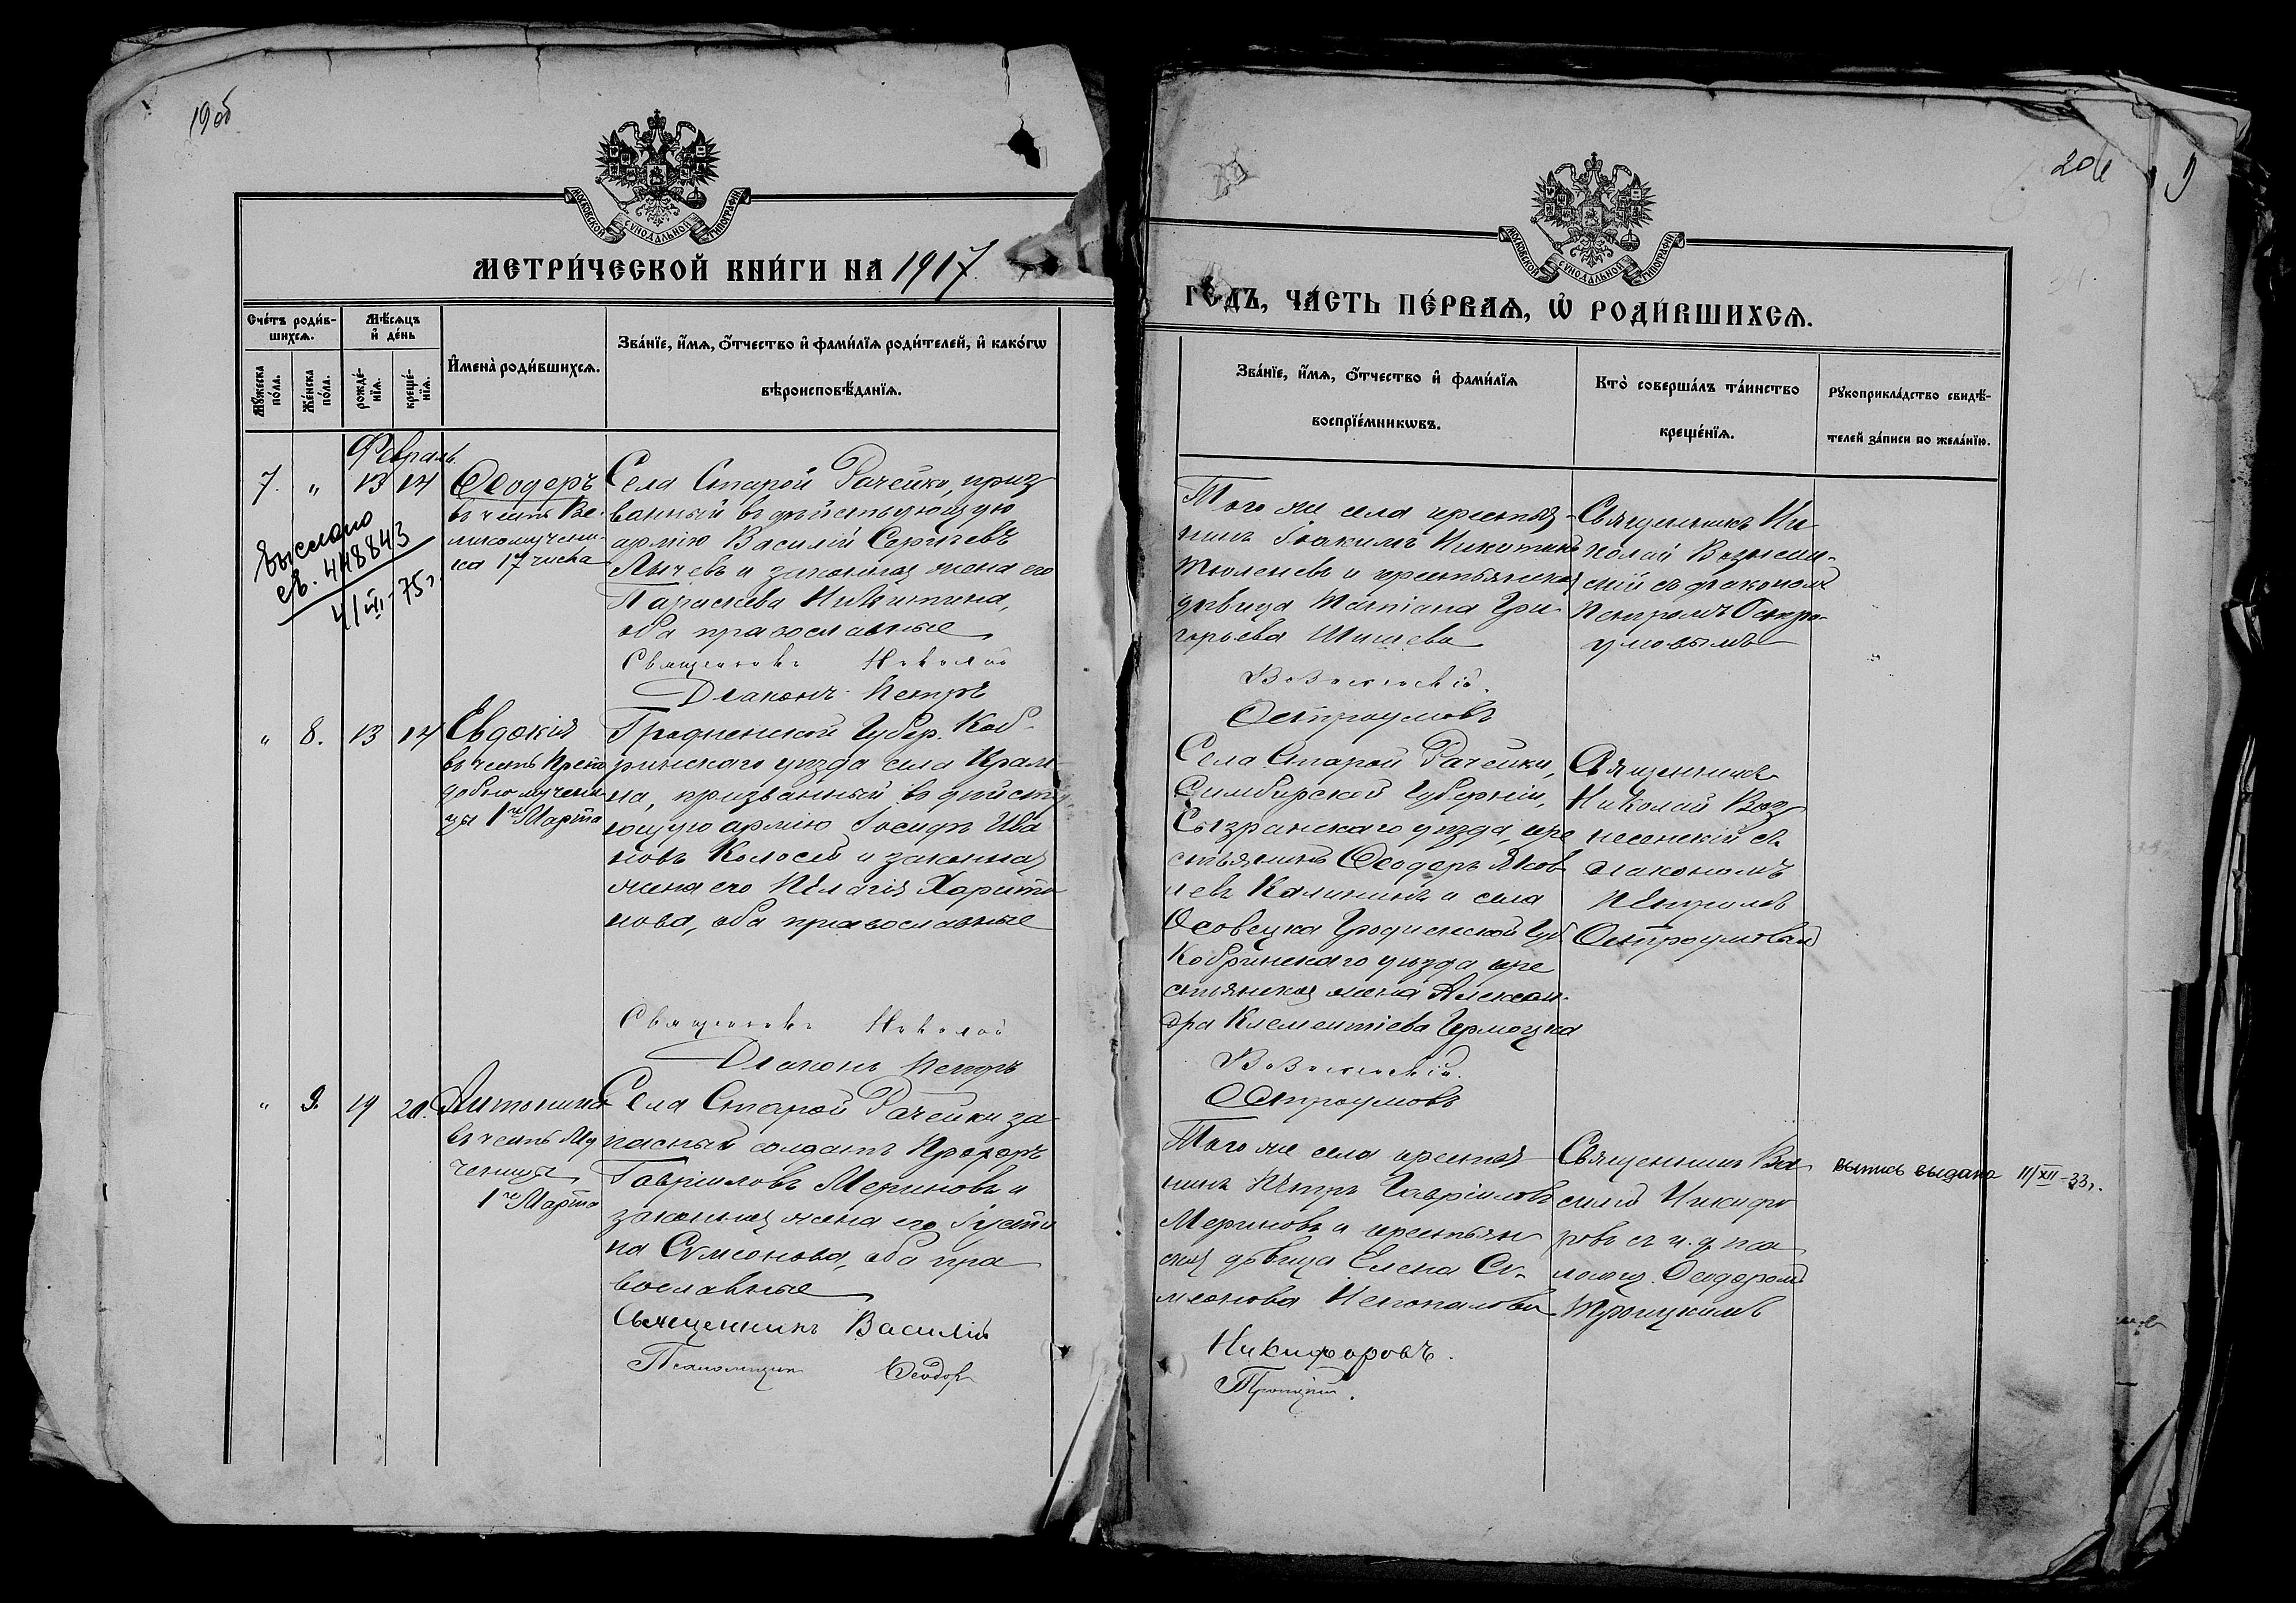 19 об
МОСКОВСКОЙ СѴНОДАЛЬНОЙ ТИПОГРАФІИ
МЕТРИ́ЧЕСКОЙ КНИ́ГИ НА 1917
Сче́тъ роди́в-
шихсѧ.
Мѣ́сѧцъ
и҆ де́нь
Мꙋ́жеска
по́ла.
Же́нска
по́ла.
рожде́-
нїѧ.
креще́-
нїѧ.
И҆мена̀ роди́вшихсѧ.
Зва́нїе, и҆́мѧ, ѻ҆́тчество и҆ фами́лїѧ роди́телей, и҆ како́гѡ
вѣроисповѣ́данїѧ.
Февраль.
7. " 13 14
Ѳеодоръ
въ честь Ве-
ликомучени-
ка 17 числа
Выслано
св. 448843
4/XI-75 г.
Села Старой Рачейки, приз
ванный въ дѣйствующую
армію Василій Сергѣевъ
Лычевъ и законная жена его
Параскева Никитина,
оба православные
Священникъ Николай
Діаконъ Петръ
" 8. 13 14
Евдокія
въ честь Препо
добномучени-
цы 1го Марта
Гродненской Губер. Коб-
ринскаго уѣзда села
на, призванный въ дѣйству
ющую армію Іосифъ Ива
новъ Колосей и законная
жена его Пелагія Харито
нова, оба православные
Священникъ Николай
Діаконъ Петръ
" 9. 19 20.
Антонина
въ честь Му
ченицы
1го Марта
Села Старой Рачейки за
пасный солдатъ Прохоръ
Гавріиловъ Мериновъ и
законная жена его Іусти
на Сѵмеонова, оба пра
вославные
Священникъ Василій
Псаломщикъ Ѳеодоръ
20
МОСКОВСКОЙ СѴНОДАЛЬНОЙ ТИПОГРАФІИ
ГО́ДЪ, ЧА́СТЬ ПЕ́РВАѦ, Ѡ҆ РОДИ́ВШИХСѦ.
Зва́нїе, и҆́мѧ, ѻ҆́тчество и҆ фами́лїѧ
воспрїе́мникѡвъ.
Кто̀ соверша́лъ та́инство
креще́нїѧ.
Рꙋкоприкла́дство свидѣ́-
телей за́писи по жела́нїю.
Того же села крестья-
нинъ Іоакимъ Никитинъ
Тюленевъ и крестьянская
дѣвица Татіана Гри-
горьева Шишева
Вознесенскій.
Остроумовъ
Священникъ Ни
колай Вознесен-
скій съ діакономъ
Петромъ Остро-
умовымъ
Села Старой Рачейки,
Симбирской Губерніи,
Сызранскаго уѣзда, кре
стьянинъ Ѳеодоръ Яков
левъ Калининъ и села
Осовецка Гродненской Губ.
Кобринскаго уѣзда кре
стьянская жена Алексан-
дра Климентіева
Вознесенскій.
Остроумовъ
Священникъ
Николай Воз
несенскій съ
діакономъ
Петромъ
Остроумовымъ
Того же села крестья
нинъ Петръ Гавріиловъ
Мериновъ и крестьян
ская дѣвица Елена Сѵ-
меонова
Никифоровъ.
Троицкій.
Священникъ Ва
силій Никифо
ровъ съ и. д. пса
ломщ. Ѳеодоромъ
Троицкимъ
выпись выдана 11/XII-33г.